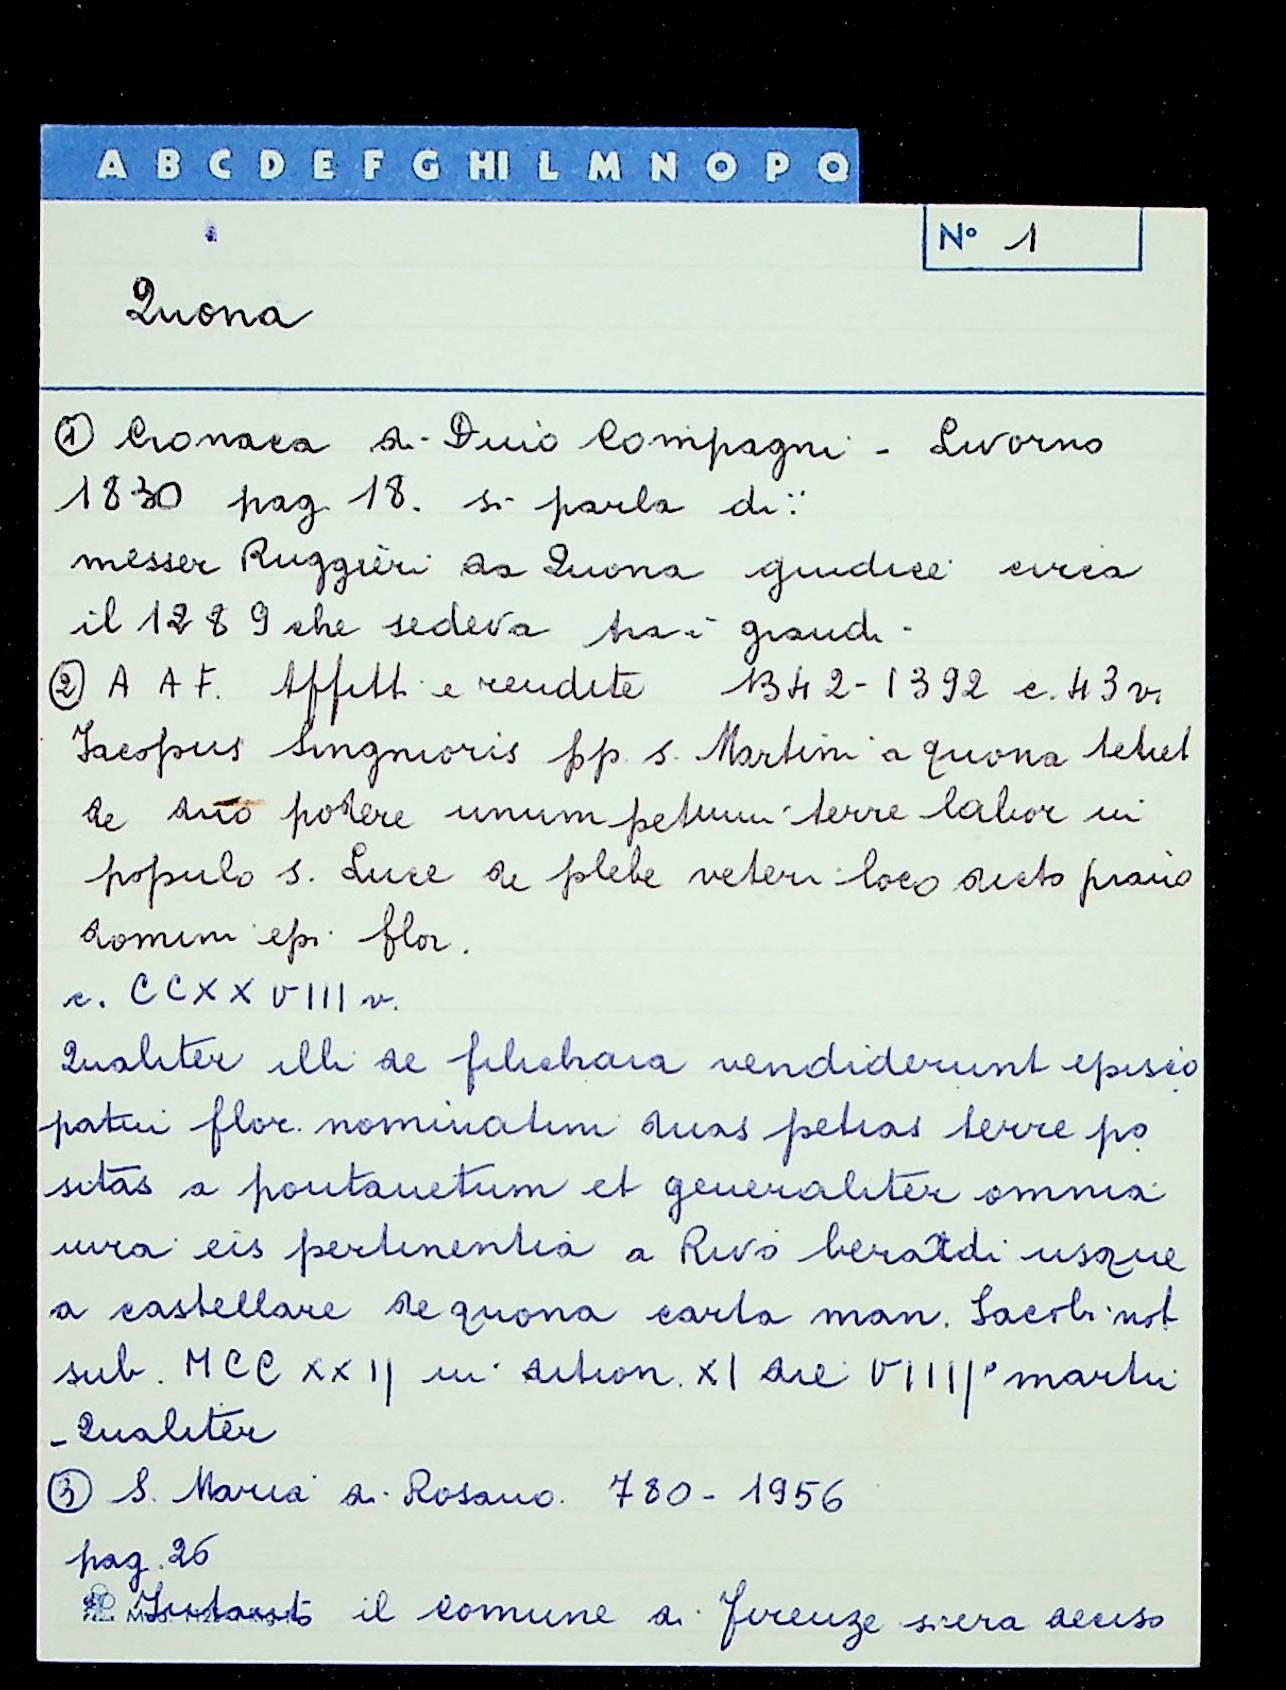 A B C D E F G HI L M N O P Q
N° 1
Quona
① Cronaca di Dino Compagni - Livorno
1830 pag. 18. si parla di:
messer Ruggieri da Quona giudice circa
il 1289 che sedeva tra i grandi.
② A A F. Affitti e rendite 1342-1392 c. 43 v.
Jacopus Singnioris pp. s. Martini a quona tenet
de suo podere unum petium terre labor in
populo s. Luce de plebe veteri loco dicto prato
domini epi flor.
c. CCXXVIII v.
Qualiter illi de filichaia vendiderunt episco
patui flor. nominatim duas petias terre po
sitas a pontanetum et generaliter omnia
iura eis pertinentia a Rivo beraldi usque
a castellare de quona carta man. Jacobi not
sub. MCCXXII in dition. XI die VIIII martii
- Qualiter
③ S. Maria di Rosano. 780 - 1956
pag. 26
Intanto il comune di Firenze s'era deciso